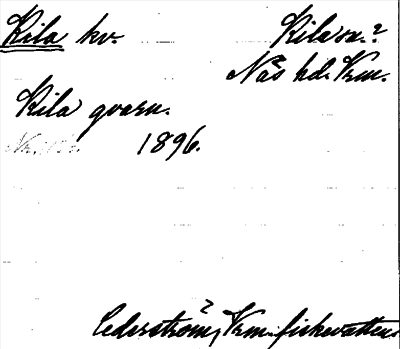 Kila kv. Kila sn.?
Näs hd. Vrm.
Kila qvarn.
1896.
Cederström, ? Vrm. fiskevatten.